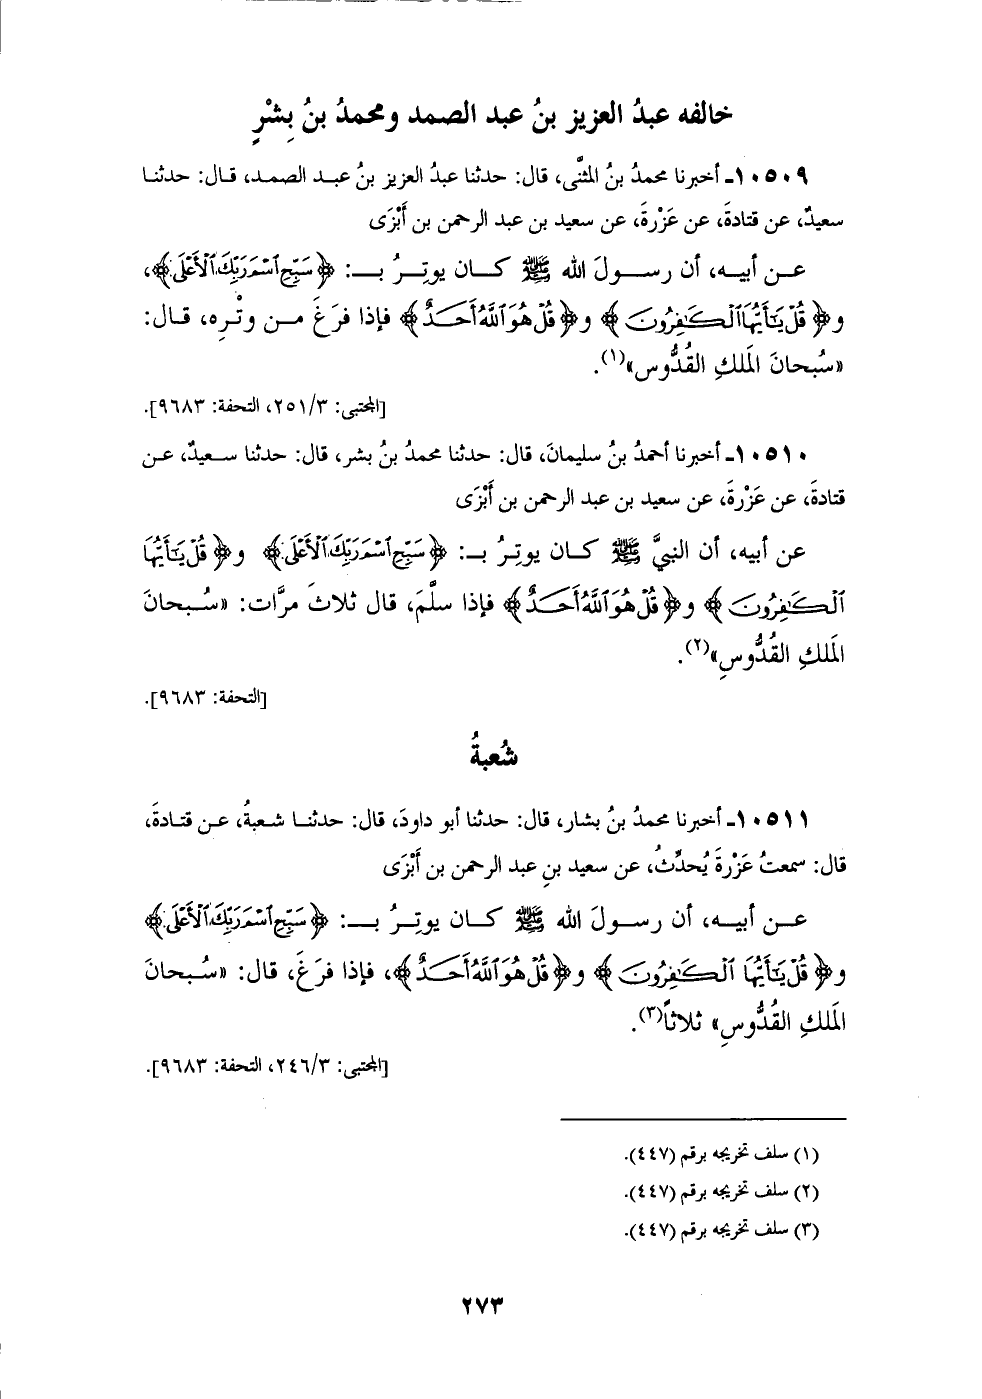 خالفه عبدُ العزيز بنُ عبد الصمد ومحمدُ بنُ بِشْرٍ
١٠٥٠٩ـ أخبرنا محمدُ بنُ المثنَّى، قال: حدثنا عبدُ العزيز بنُ عبد الصمد، قال: حدثنا
سعيدٌ، عن قتادةَ، عن عَزْرةَ، عن سعيد بن عبد الرحمن بن أَبْزَى
عن أبيه، أن رسولَ الله ﷺ كان يوتِرُ بـ: ﴿سَبِّحِ ٱسْمَ رَبِّكَ ٱلْأَعْلَى﴾،
و﴿قُلْ يَٰٓأَيُّهَا ٱلْكَٰفِرُونَ﴾ و﴿قُلْ هُوَ ٱللَّهُ أَحَدٌ﴾ فإذا فرَغَ من وتْرِه، قال:
«سُبحانَ المَلكِ القُدُّوسِ»(١).
[المجتبى: ٢٥١/٣، التحفة: ٩٦٨٣].
١٠٥١٠ـ أخبرنا أحمدُ بنُ سليمانَ، قال: حدثنا محمدُ بنُ بشر، قال: حدثنا سعيدٌ، عن
قتادةَ، عن عَزْرةَ، عن سعيد بن عبد الرحمن بن أَبْزَى
عن أبيه، أن النبيَّ ﷺ كان يوتِرُ بـ: ﴿سَبِّحِ ٱسْمَ رَبِّكَ ٱلْأَعْلَى﴾ و﴿قُلْ يَٰٓأَيُّهَا
ٱلْكَٰفِرُونَ﴾ و﴿قُلْ هُوَ ٱللَّهُ أَحَدٌ﴾ فإذا سلَّمَ، قال ثلاثَ مرَّات: «سُبحانَ
المَلكِ القُدُّوسِ»(٢).
[التحفة: ٩٦٨٣].
شُعبةُ
١٠٥١١ـ أخبرنا محمدُ بنُ بشار، قال: حدثنا أبو داودَ، قال: حدثنا شعبةُ، عن قتادةَ،
قال: سمعتُ عَزْرةَ يُحدِّثُ، عن سعيد بنِ عبد الرحمن بن أَبْزَى
عن أبيه، أن رسولَ الله ﷺ كان يوتِرُ بـ: ﴿سَبِّحِ ٱسْمَ رَبِّكَ ٱلْأَعْلَى﴾
و﴿قُلْ يَٰٓأَيُّهَا ٱلْكَٰفِرُونَ﴾ و﴿قُلْ هُوَ ٱللَّهُ أَحَدٌ﴾، فإذا فرَغَ، قال: «سُبحانَ
المَلكِ القُدُّوسِ» ثلاثاً(٣).
[المجتبى: ٢٤٦/٣، التحفة: ٩٦٨٣].
(١) سلف تخريجه برقم (٤٤٧).
(٢) سلف تخريجه برقم (٤٤٧).
(٣) سلف تخريجه برقم (٤٤٧).
٢٧٣